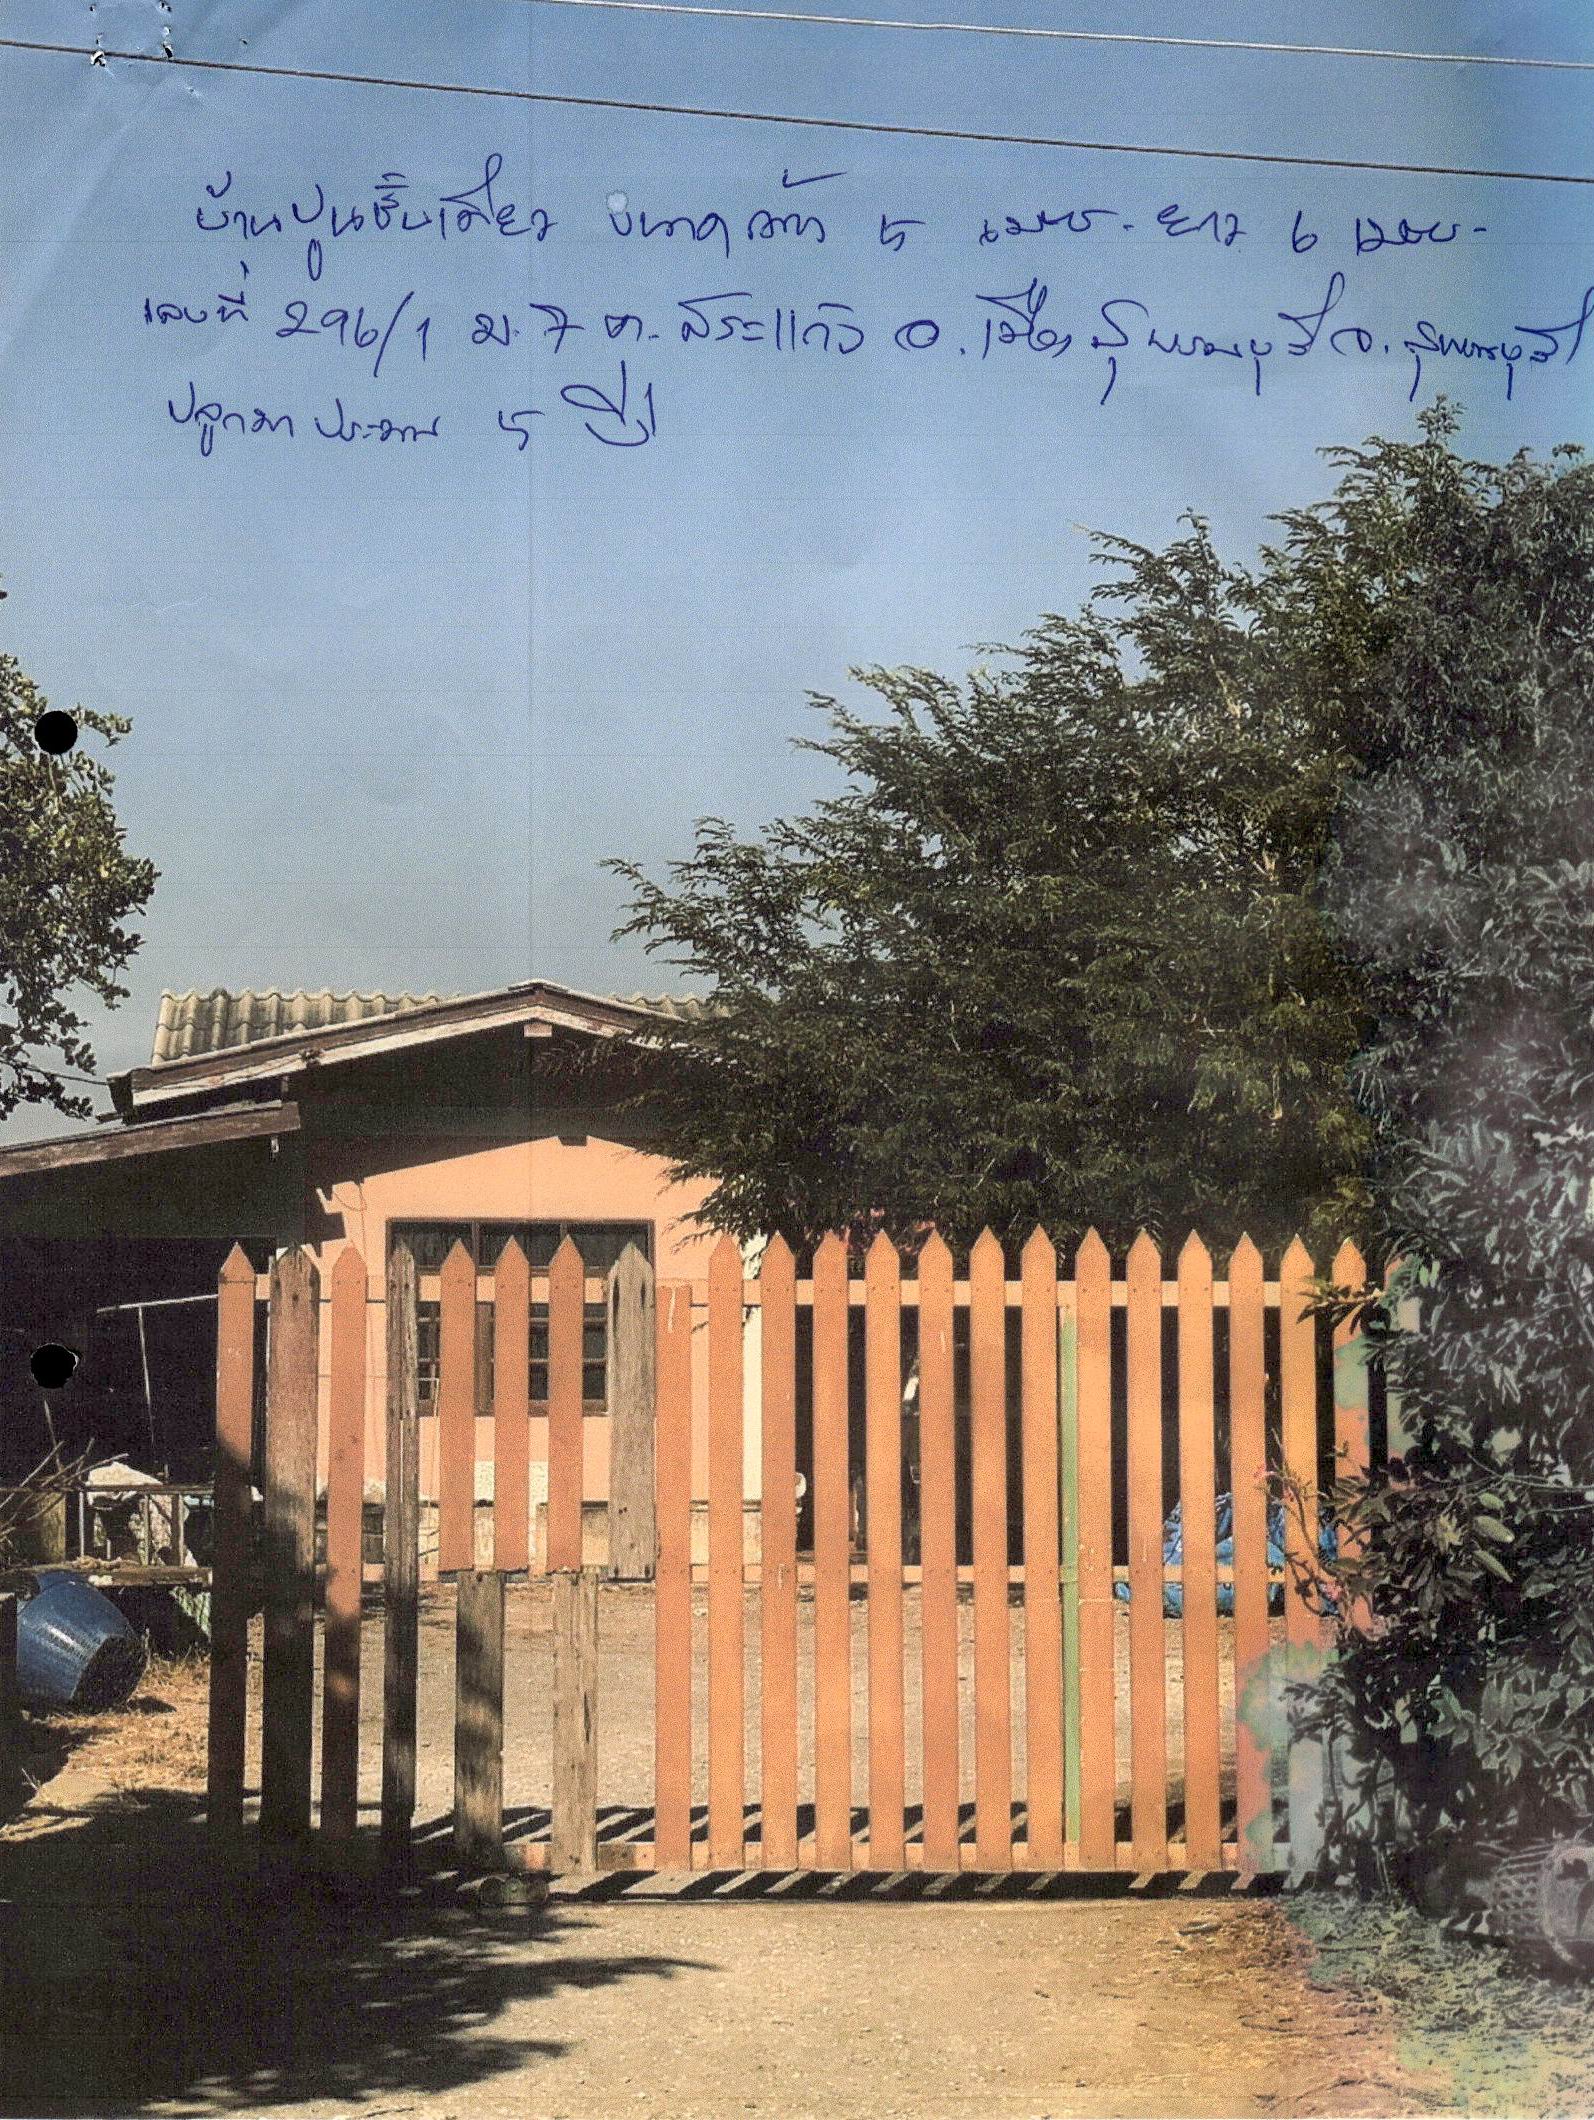 บ้านปูนชั้นเดียว ขนาดกว้าง 5 เมตร. ยาว 6 เมตร.
เลขที่ 296/1 ม.7 ต.สระแก้ว อ.เมืองสุพรรณบุรี จ.สุพรรณบุรี
ปลูกมา ประมาณ 5 ปี